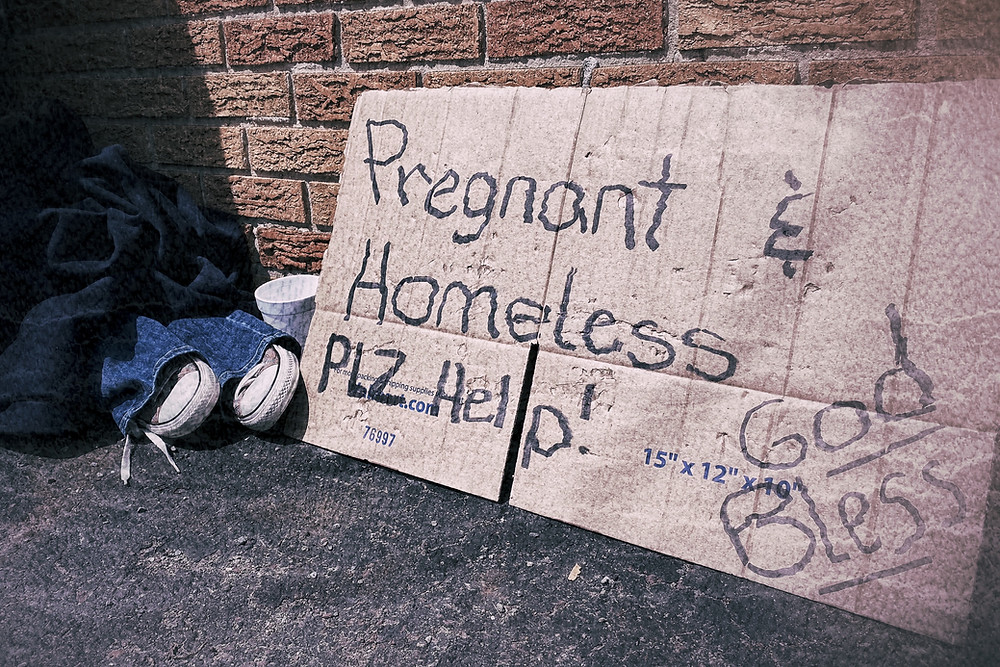 Pregnant &
Homeless
PLZ Help!
God
Bless
shipping supplies
.com
76997
15" x 12" x 10"